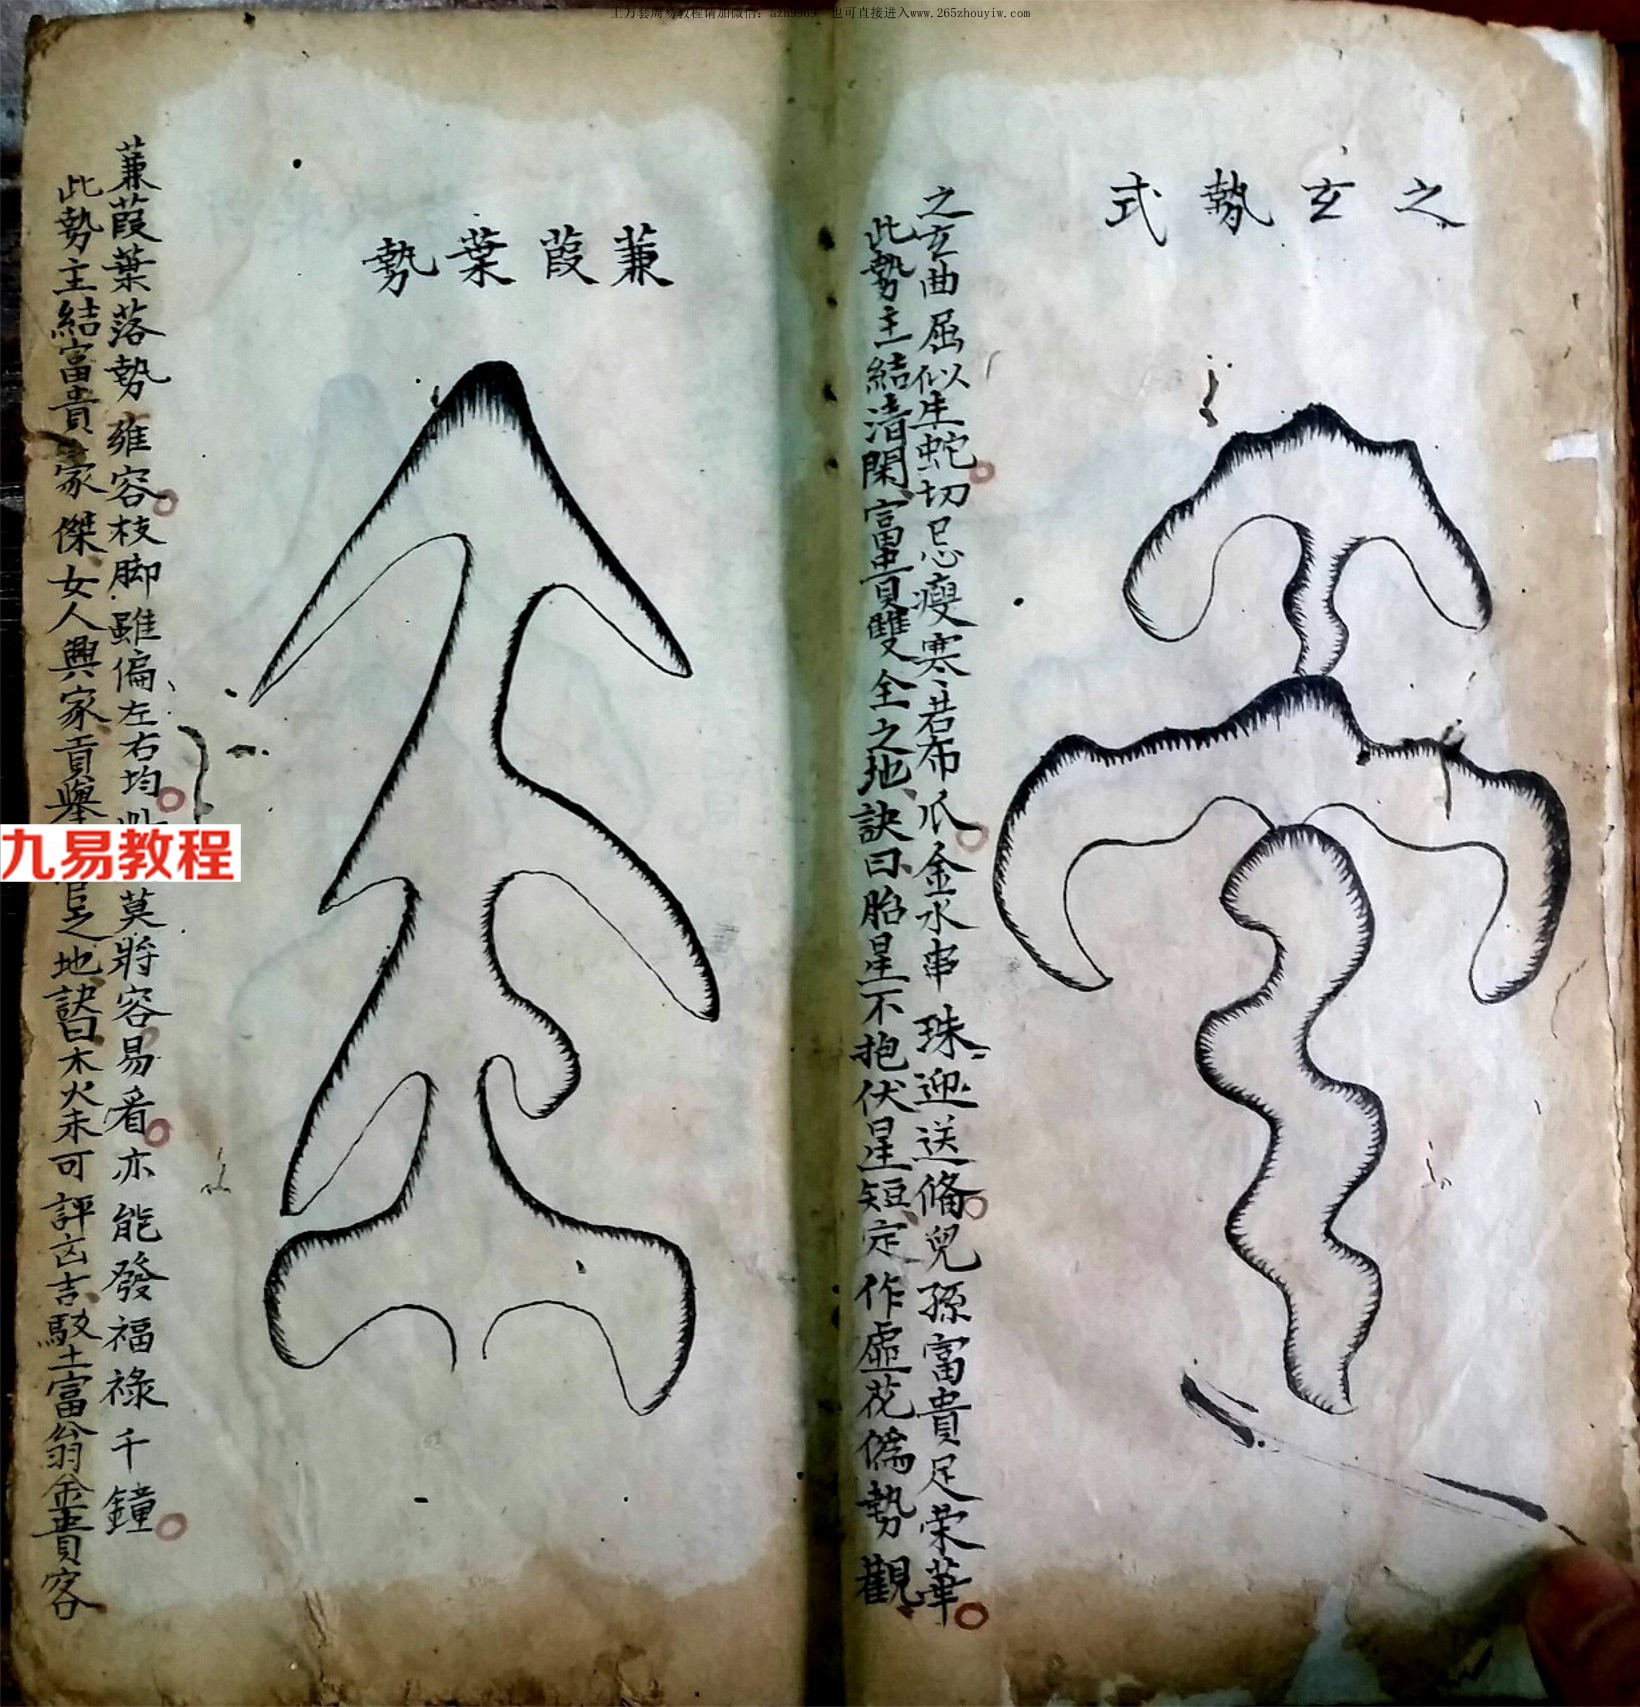 上万套周易教程请加微信：azh9969 也可直接进入www.265zhouyiw.com
之玄勢式
之玄曲屈似生蛇切忌瘦寒若布爪金水串珠迎送俻兒孫富貴足荣華
此勢主結清閑富貴雙全之地訣曰胎星不抱伏星短定作虛花僞勢觀
蒹葭葉勢
蒹葭葉落勢雍容枝脚雖偏左右均此莫將容易看亦能發福祿千鐘
此勢主結富貴家傑女人興家貢舉官之地訣曰木火未可評凶吉駁土富翁金貴客
九易教程